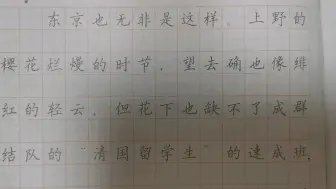 东京也无非是这样。上野的
樱花烂熳的时节，望去确也像绯
红的轻云，但花下也缺不了成群
结队的“清国留学生”的速成班，